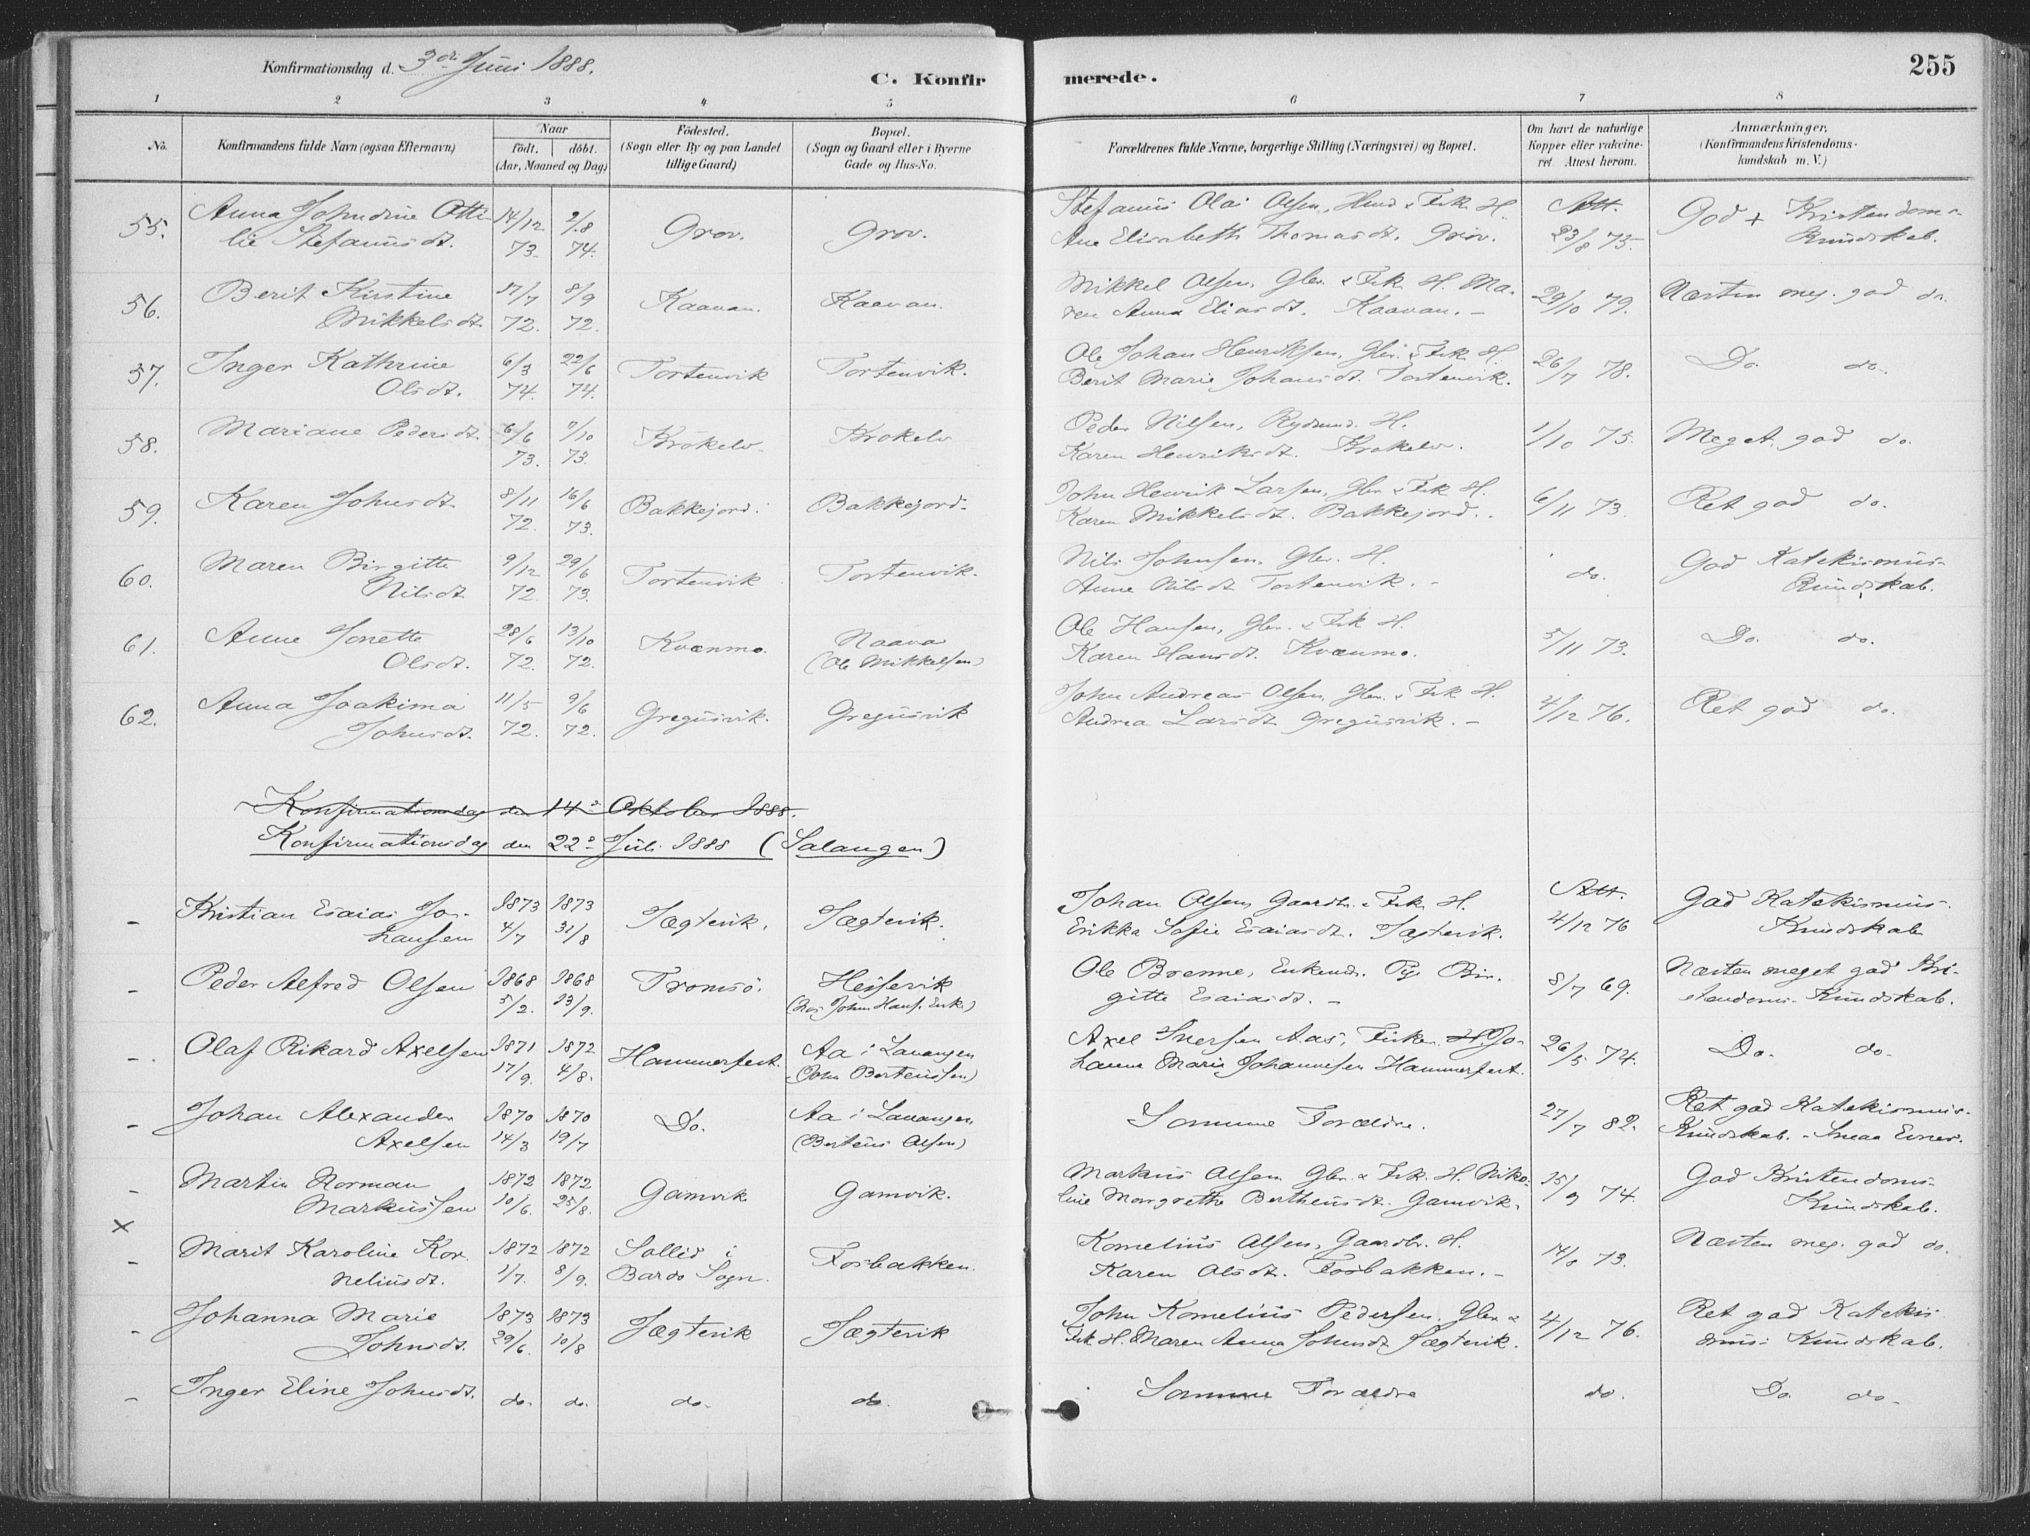 Konfirmationsdag d. 3die Juni 1888.
C. Konfirmerede.
255
1 2 3 4 5 6 7 8
No.
Konfirmandens fulde Navn (ogsaa Efternavn)
Naar
födt. döbt.
(Aar, Maaned og Dag)
Födested.
(Sogn eller By og paa Landet
tillige Gaard)
Bopæl.
(Sogn og Gaard eller i Byerne
Gade og Hus-No.
Forældrenes fulde Navne, borgerlige Stilling (Næringsvei) og Bopæl.
Om havt de naturlige
Kopper eller vakcine-
ret. Attest herom.
Anmærkninger.
(Konfirmandens Kristendoms-
kundskab m. V.)
55. Anna Johndine Otti- 14/12 2/8 Grov. Grov. Stefanus Olai Olsen, Husm. & Fisk. H. Att. God + Kristendoms-
lie Stefanusdt. 73 74. Ane Elisabeth Thomasdt. Grov. 23/8 75. Kundskab.
56. Berit Kirstine 17/7 8/9 Kaavan. Kaavan. Mikkel Olsen, Gbr. & Fisk. H. Ma- 29/10 79. Næsten meg. god do.
Mikkelsdt. 72. 72. ren Anna Eliasdt. Kaavan. -
57. Inger Kathrine 6/3 22/6 Tortenvik Tortenvik. Ole Johan Henriksen, Gbr. & Fisk. H. 26/7 78. Do. do.
Olsdt. 74. 74. Berit Marie Johansdt. Tortenvik.
58. Mariane Pedersdt. 6/6 7/10 Krokelv Krokelv Peder Nilsen, Rydnmd. H. 1/10 75. Meget god do.
73. 73. Karen Henriksdt. Krokelv.
59. Karen Johnsdt. 8/11 16/6 Bakkejord. Bakkejord. John Henrik Larsen, Gbr. & Fisk. H. 6/11 73. Ret god do.
72. 73. Karen Mikkelsdt. Bakkejord.
60. Maren Birgitte 9/12 29/6 Tortenvik Tortenvik. Nils Johnsen, Gbr. H. do. God Katekismus-
Nilsdt. 72. 73. Anne Nilsdt Tortenvik. - Kundskab.
61. Anne Jonette 28/6 13/10 Kvænmo. Naava Ole Hansen, Gbr. & Fisk. H. 5/11 73. Do. do.
Olsdt. 72. 72. (Ole Mikkelsen) Karen Hansdt. Kvænmo.
62. Anna Joakima 11/5 9/6 Gregusvik. Gregusvik John Andreas Olsen, Gbr. & Fisk. H. 4/12 76. Ret god do.
Johnsdt. 72. 72. Andrea Larsdt. Gregusvik. -
Konfirmationsdag den 14de Oktober 1888.
Konfirmationsdag den 22de Juli 1888 (Salangen)
- Kristian Esaias Jo- 1873 1873 Jægtvik. Jægtvik. Johan Olsen, Gaardbr. & Fisk. H. Att. God Katekismus-
hansen 4/7 31/8 Erikka Sofie Esaiasdt. Jægtvik. 4/12 76 Kundskab
- Peder Alfred Olsen 1868 1868 Tromsö. Hesjevik Ole Brenne, Enkemd. Pige Bir- 8/7 69. Næsten meget god Kri-
5/2. 13/9. (hos John Hans. Enke) gitte Esaiasdt. - stendoms-Kundskab.
- Olaf Rikard Axelsen 1871 1872 Hammerfest. Aa i Lavangen Axel Iversen Aas, Fisker. H. Jo- 26/5 74. Do. do.
17/9. 4/8. (John Berteussen) hanna Marie Johannesen Hammerfest.
- Johan Alexander 1870 1870 Do. Aa i Lavangen Samme Forældre. 27/7 82. Ret god Katekismus-
Axelsen 14/3 19/7 (Berteus Olsen) Kundskab. - Smaa Evner.
- Martin Norman 1872 1872 Gamvik Gamvik. Markus Olsen, Gbr. & Fisk. H. Niko- 15/9 74. God Kristendoms-
Markussen 10/6. 25/8. line Margrethe Bertheusdt. Gamvik. Kundskab.
×
- Marit Karoline Kor- 1872 1872 Sollid i Fosbakken. Kornelius Olsen, Gaardbr. H. 73. Næsten meg. god do.
neliusdt. 1/7. 8/9. Bardo Sogn. Karen Olsdt. Fosbakken. -
- Johanna Marie 1873 1873 Jægtvik Jægtvik John Kornelius Pedersen, Gbr. & 4/12 76. Ret god Katekis-
Johnsdt. 29/6. 10/8 Fisk. H. Maren Anna Johnsdt Jægtvik. mus-Kundskab.
- Inger Eline Johnsdt. do. do. do. do. Samme Forældre do. Do. do.